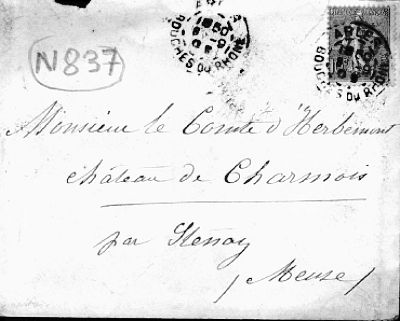 ARLES
BOUCHES DU RHONE
ARLES
BOUCHES DU RHONE
N837
Monsieur le Comte d'Herbemont
château de Charmois
par Stenay
(Meuse)